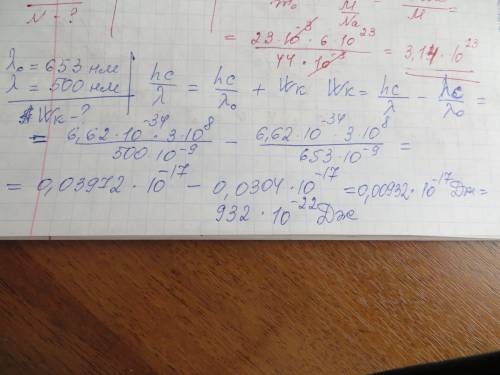 N - ?
m₀ M/Nₐ M =
= 23·10⁻³·6·10²³ / 44·10⁻³ = 3,14·10²³
λ₀ = 653 нм | hc/λ = hc/λ₀ + Wк Wк = hc/λ - hc/λ₀ =
λ = 500 нм
Wк - ?
= 6,62·10⁻³⁴·3·10⁸ / 500·10⁻⁹ - 6,62·10⁻³⁴·3·10⁸ / 653·10⁻⁹ =
= 0,03972·10⁻¹⁷ - 0,0304·10⁻¹⁷ = 0,00932·10⁻¹⁷ Дж =
932·10⁻²² Дж